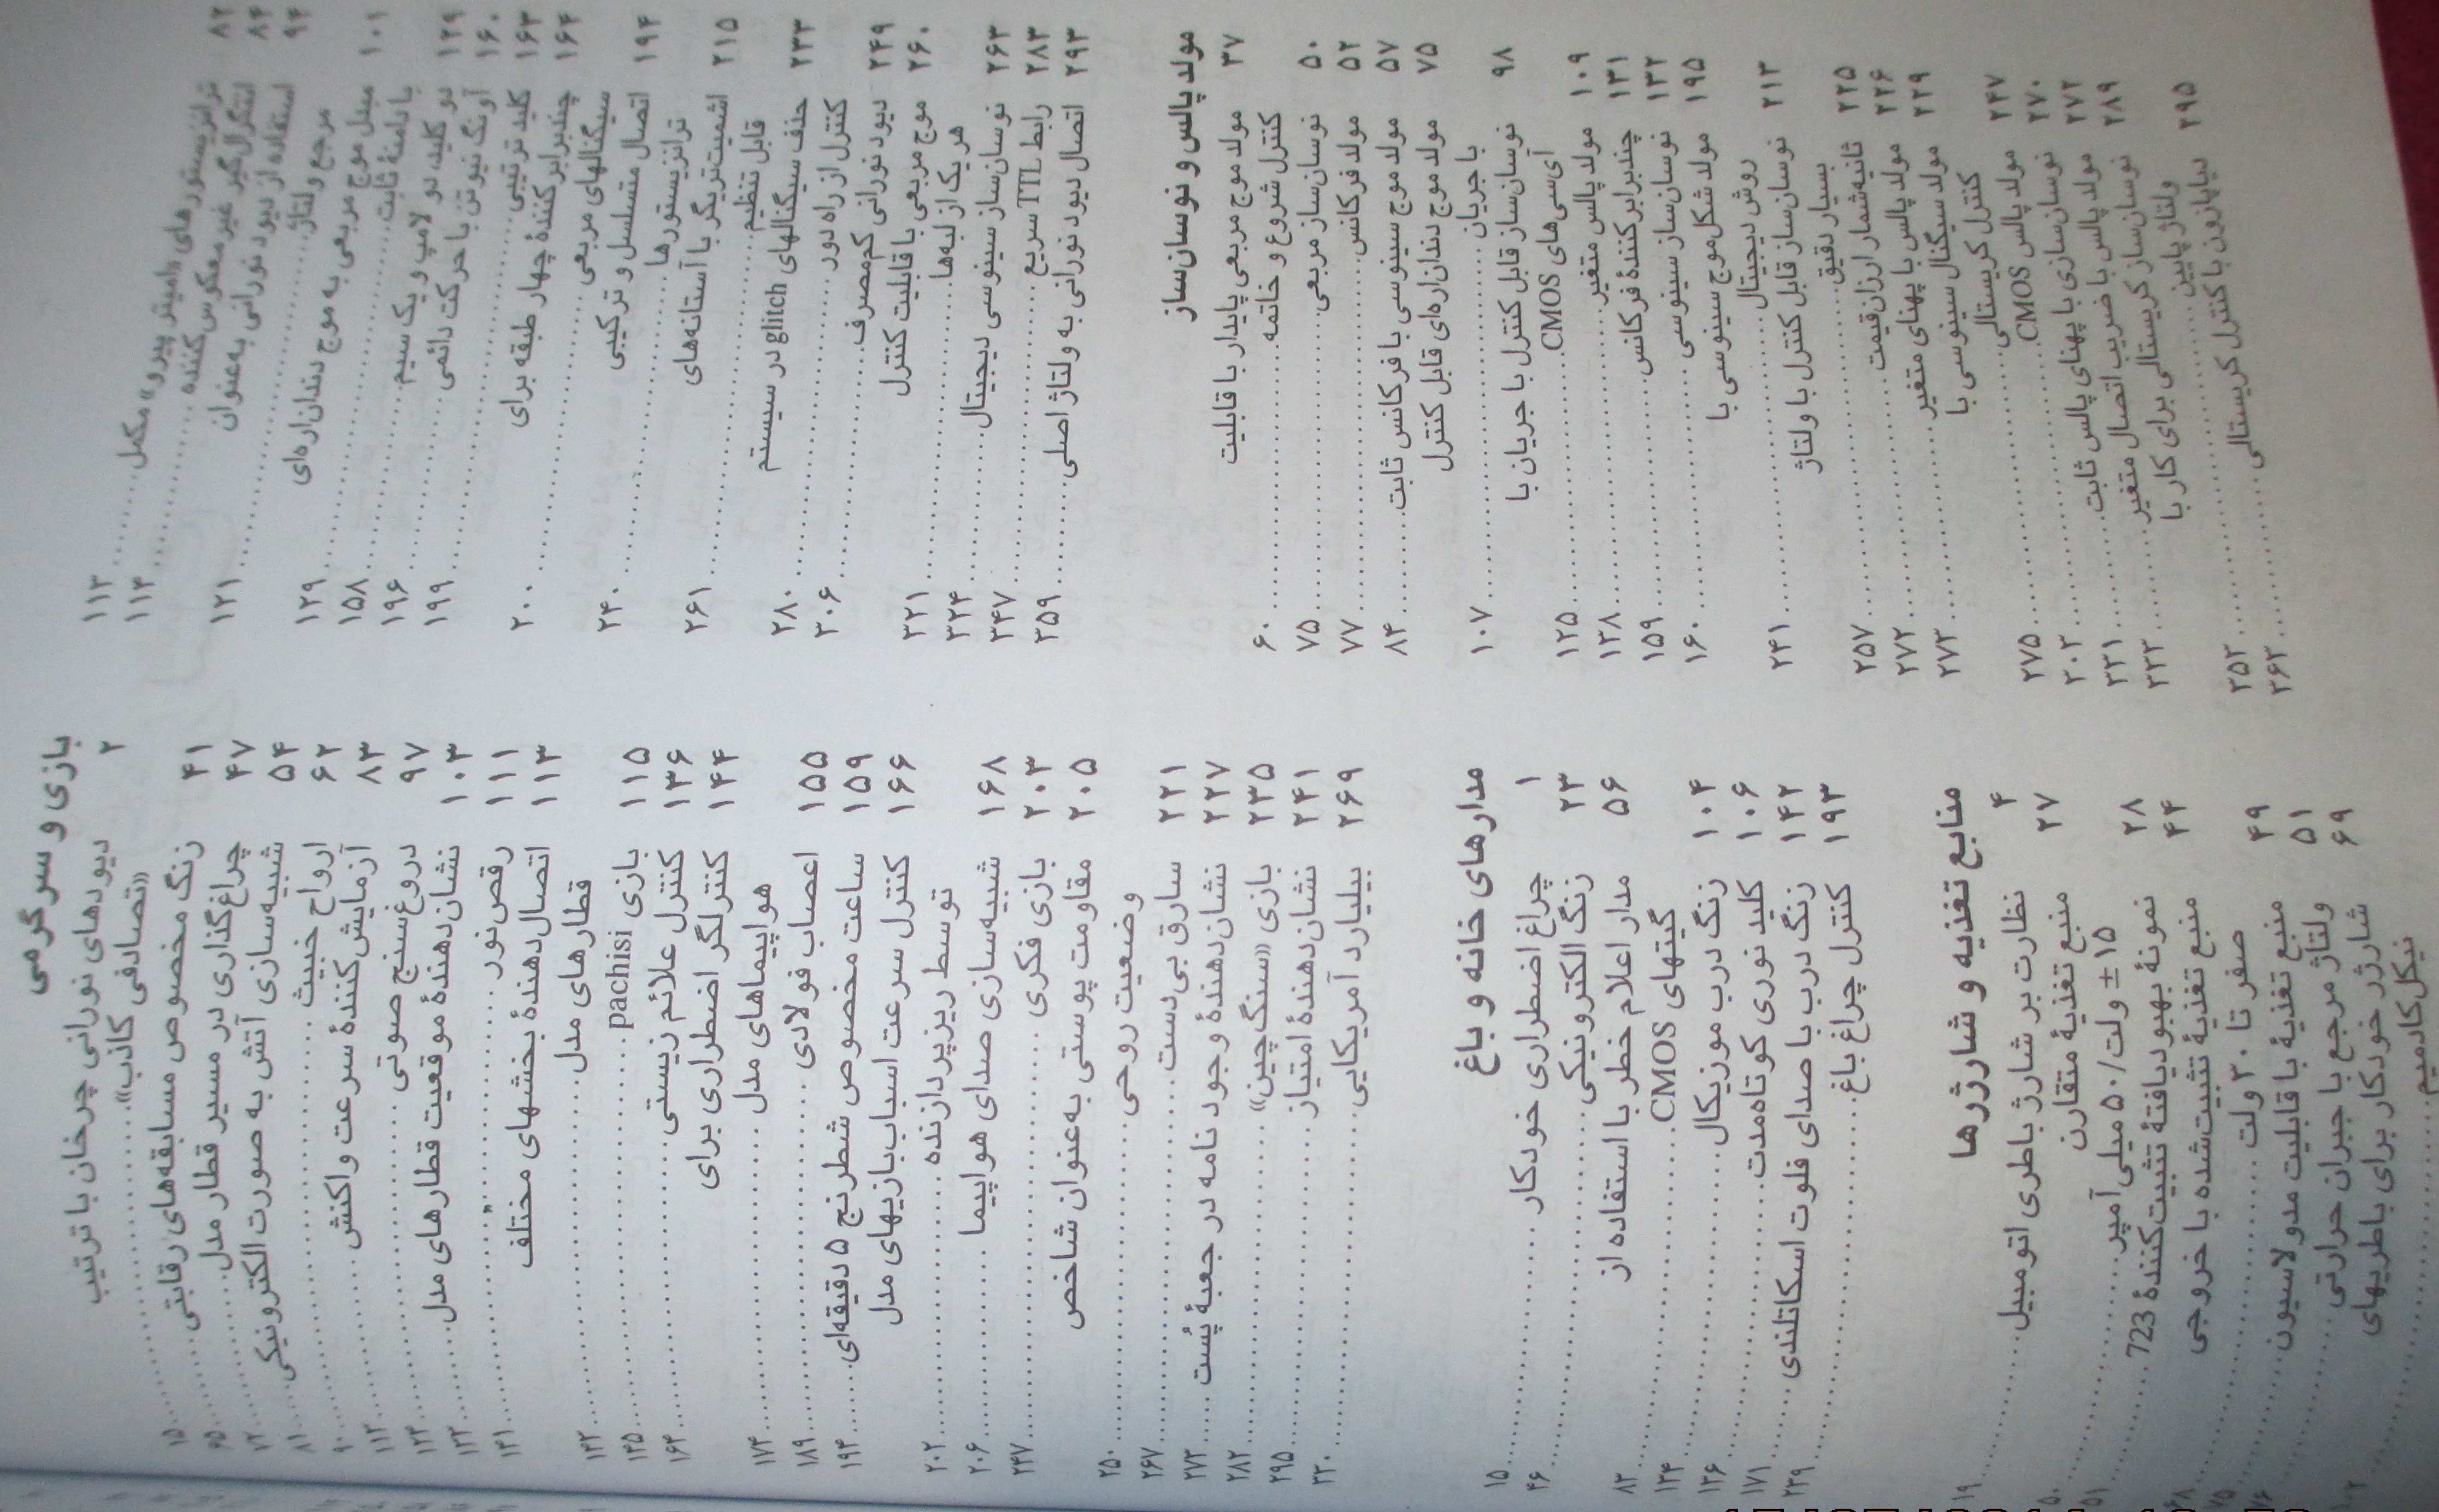 ۸۲ ترانزیستورهای «امیتر پیرو» مکمل ..... ۱۱۳
۸۴ انتگرال‌گیر غیرمعکوس‌کننده ..... ۱۱۴
۹۴ استفاده از دیود نورانی به‌عنوان
مرجع ولتاژ ..... ۱۲۱
۱۰۱ مبدل موج مربعی به موج دندان‌اره‌ای
با دامنهٔ ثابت ..... ۱۲۹
۱۲۹ دو کلید، دو لامپ و یک سیم ..... ۱۵۸
۱۶۰ آونگ نیوتن با حرکت دائمی ..... ۱۹۶
۱۶۳ کلید ترتیبی ..... ۱۹۹
۱۶۴ چندبرابرکنندهٔ چهار طبقه برای
سیگنالهای مربعی ..... ۲۰۰
۱۹۴ اتصال متسلسل و ترکیبی
ترانزیستورها ..... ۲۴۰
۲۱۵ اشمیت‌تریگر با آستانه‌های
قابل تنظیم ..... ۲۶۱
۲۳۳ حذف سیگنالهای glitch در سیستم
کنترل از راه دور ..... ۲۸۰
۲۴۹ دیود نورانی کم‌مصرف ..... ۳۰۶
۲۶۰ موج مربعی با قابلیت کنترل
هر یک از لبه‌ها ..... ۳۲۱
۲۶۳ نوسان‌ساز سینوسی دیجیتال ..... ۳۲۴
۲۸۳ رابط TTL سریع ..... ۳۴۷
۲۹۳ اتصال دیود نورانی به ولتاژ اصلی ..... ۳۵۹
مولد پالس و نوسان‌ساز
۳۷ مولد موج مربعی پایدار با قابلیت
کنترل شروع و خاتمه ..... ۶۰
۵۰ نوسان‌ساز مربعی ..... ۷۵
۵۲ مولد فرکانس ..... ۷۷
۵۷ مولد موج سینوسی با فرکانس ثابت ..... ۸۴
۷۵ مولد موج دندان‌اره‌ای قابل کنترل
با جریان ..... ۱۰۷
۹۸ نوسان‌ساز قابل کنترل با جریان با
آی‌سی‌های CMOS ..... ۱۲۵
۱۰۹ مولد پالس متغیر ..... ۱۳۸
۱۳۱ چندبرابرکنندهٔ فرکانس ..... ۱۵۹
۱۳۲ نوسان‌ساز سینوسی ..... ۱۶۰
۱۹۵ مولد شکل‌موج سینوسی با
روش دیجیتال ..... ۲۴۱
۲۱۳ نوسان‌ساز قابل کنترل با ولتاژ
بسیار دقیق ..... ۲۵۷
۲۲۵ ثانیه‌شمار ارزان‌قیمت ..... ۲۷۲
۲۲۶ مولد پالس با پهنای متغیر ..... ۲۷۳
۲۲۹ مولد سیگنال سینوسی با
کنترل کریستالی ..... ۲۷۵
۲۴۷ مولد پالس CMOS ..... ۳۰۳
۲۷۰ نوسان‌سازی با پهنای پالس ثابت ..... ۳۳۱
۲۷۲ مولد پالس با ضریب اتصال متغیر ..... ۳۳۳
۲۸۹ نوسان‌ساز کریستالی برای کار با
ولتاژ پایین ..... ۳۵۳
۲۹۵ نیاپازون با کنترل کریستالی ..... ۳۶۳
بازی و سرگرمی
۲ دیودهای نورانی چرخان با ترتیب
«تصادفی کاذب» ..... ۱۵
۴۱ زنگ مخصوص مسابقه‌های رقابتی ..... ۶۵
۴۷ چراغ‌گذاری در مسیر قطار مدل
۵۴ شبیه‌سازی آتش به صورت الکترونیکی ..... ۸۱
۶۲ ارواح خبیث ..... ۹۰
۸۳ آزمایش‌کنندهٔ سرعت واکنش ..... ۱۱۲
۹۷ دروغ‌سنج صوتی ..... ۱۲۴
۱۰۳ نشان‌دهندهٔ موقعیت قطارهای مدل ..... ۱۳۲
۱۱۱ رقص نور ..... ۱۴۱
۱۱۳ اتصال‌دهندهٔ بخشهای مختلف
قطارهای مدل ..... ۱۴۲
۱۱۵ بازی pachisi ..... ۱۴۵
۱۳۶ کنترل علائم زیستی ..... ۱۶۴
۱۴۴ کنترلگر اضطراری برای
هواپیماهای مدل ..... ۱۷۴
۱۵۵ اعصاب فولادی ..... ۱۸۹
۱۵۹ ساعت مخصوص شطرنج ۵ دقیقه‌ای ..... ۱۹۴
۱۶۶ کنترل سرعت اسباب‌بازیهای مدل
توسط ریزپردازنده ..... ۲۰۲
۱۶۸ شبیه‌سازی صدای هواپیما ..... ۲۰۶
۲۰۳ بازی فکری ..... ۲۴۷
۲۰۵ مقاومت پوستی به‌عنوان شاخص
وضعیت روحی ..... ۲۵۰
۲۲۱ سارق بی‌دست ..... ۲۶۷
۲۲۷ نشان‌دهندهٔ وجود نامه در جعبهٔ پُست ..... ۲۷۳
۲۳۵ بازی «سنگ‌چین» ..... ۲۸۲
۲۴۱ نشان‌دهندهٔ امتیاز ..... ۲۹۵
۲۶۹ بیلیارد آمریکایی ..... ۳۳۰
مدارهای خانه و باغ
۱ چراغ اضطراری خودکار ..... ۱۵
۲۳ زنگ الکترونیکی ..... ۴۶
۵۶ مدار اعلام خطر با استفاده از
گیتهای CMOS ..... ۸۳
۱۰۴ زنگ درب موزیکال ..... ۱۳۴
۱۰۶ کلید نوری کوتاه‌مدت ..... ۱۳۶
۱۴۲ زنگ درب با صدای فلوت اسکاتلندی ..... ۱۷۱
۱۹۳ کنترل چراغ باغ ..... ۲۳۹
منابع تغذیه و شارژرها
۴ نظارت بر شارژ باطری اتومبیل ..... ۱۹
۲۷ منبع تغذیهٔ متقارن
±۱۵ ولت/۵۰ میلی‌آمپر
۲۸ نمونهٔ بهبودیافتهٔ تثبیت‌کنندهٔ 723
۴۴ منبع تغذیهٔ تثبیت‌شده با خروجی
صفر تا ۳۰ ولت
۴۹ منبع تغذیهٔ با قابلیت مدولاسیون
۵۱ ولتاژ مرجع با جبران حرارتی
۶۹ شارژر خودکار برای باطریهای
نیکل‌کادمیم